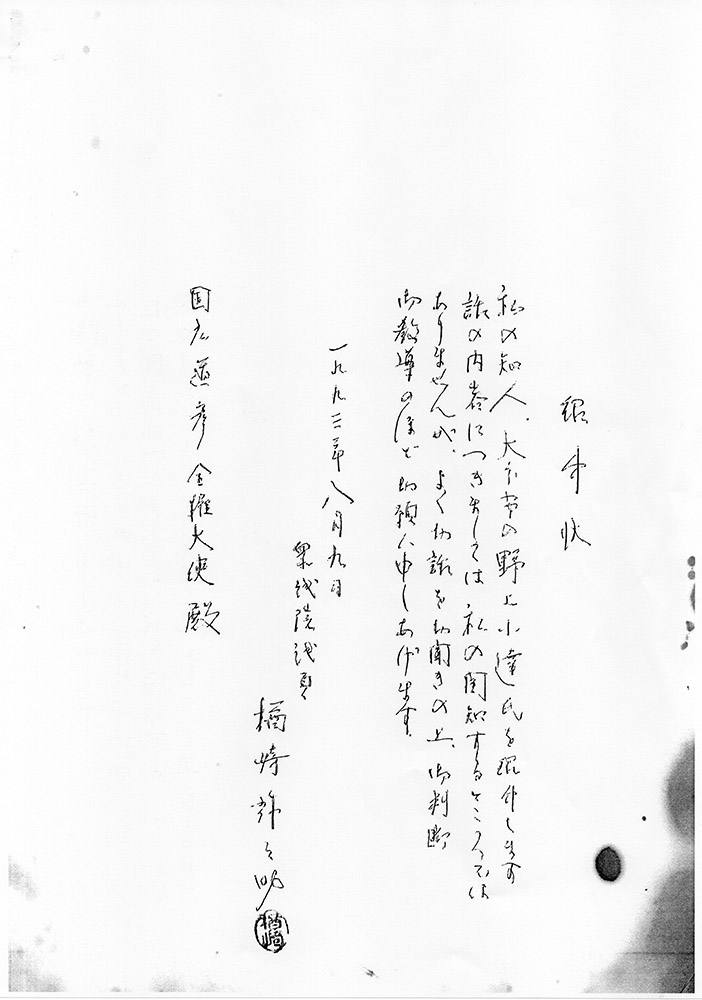 紹介状
私の知人、大不市の野上小達氏を紹介します
話の内容につきましては、私の関知するところでは
ありませんが、よく御話を御聞きの上、御判断
御教導のほど御願い申しあげます。
一九九三年八月九日
衆議院議員
楢崎弥之助
楢崎
国広道彦全権大使殿